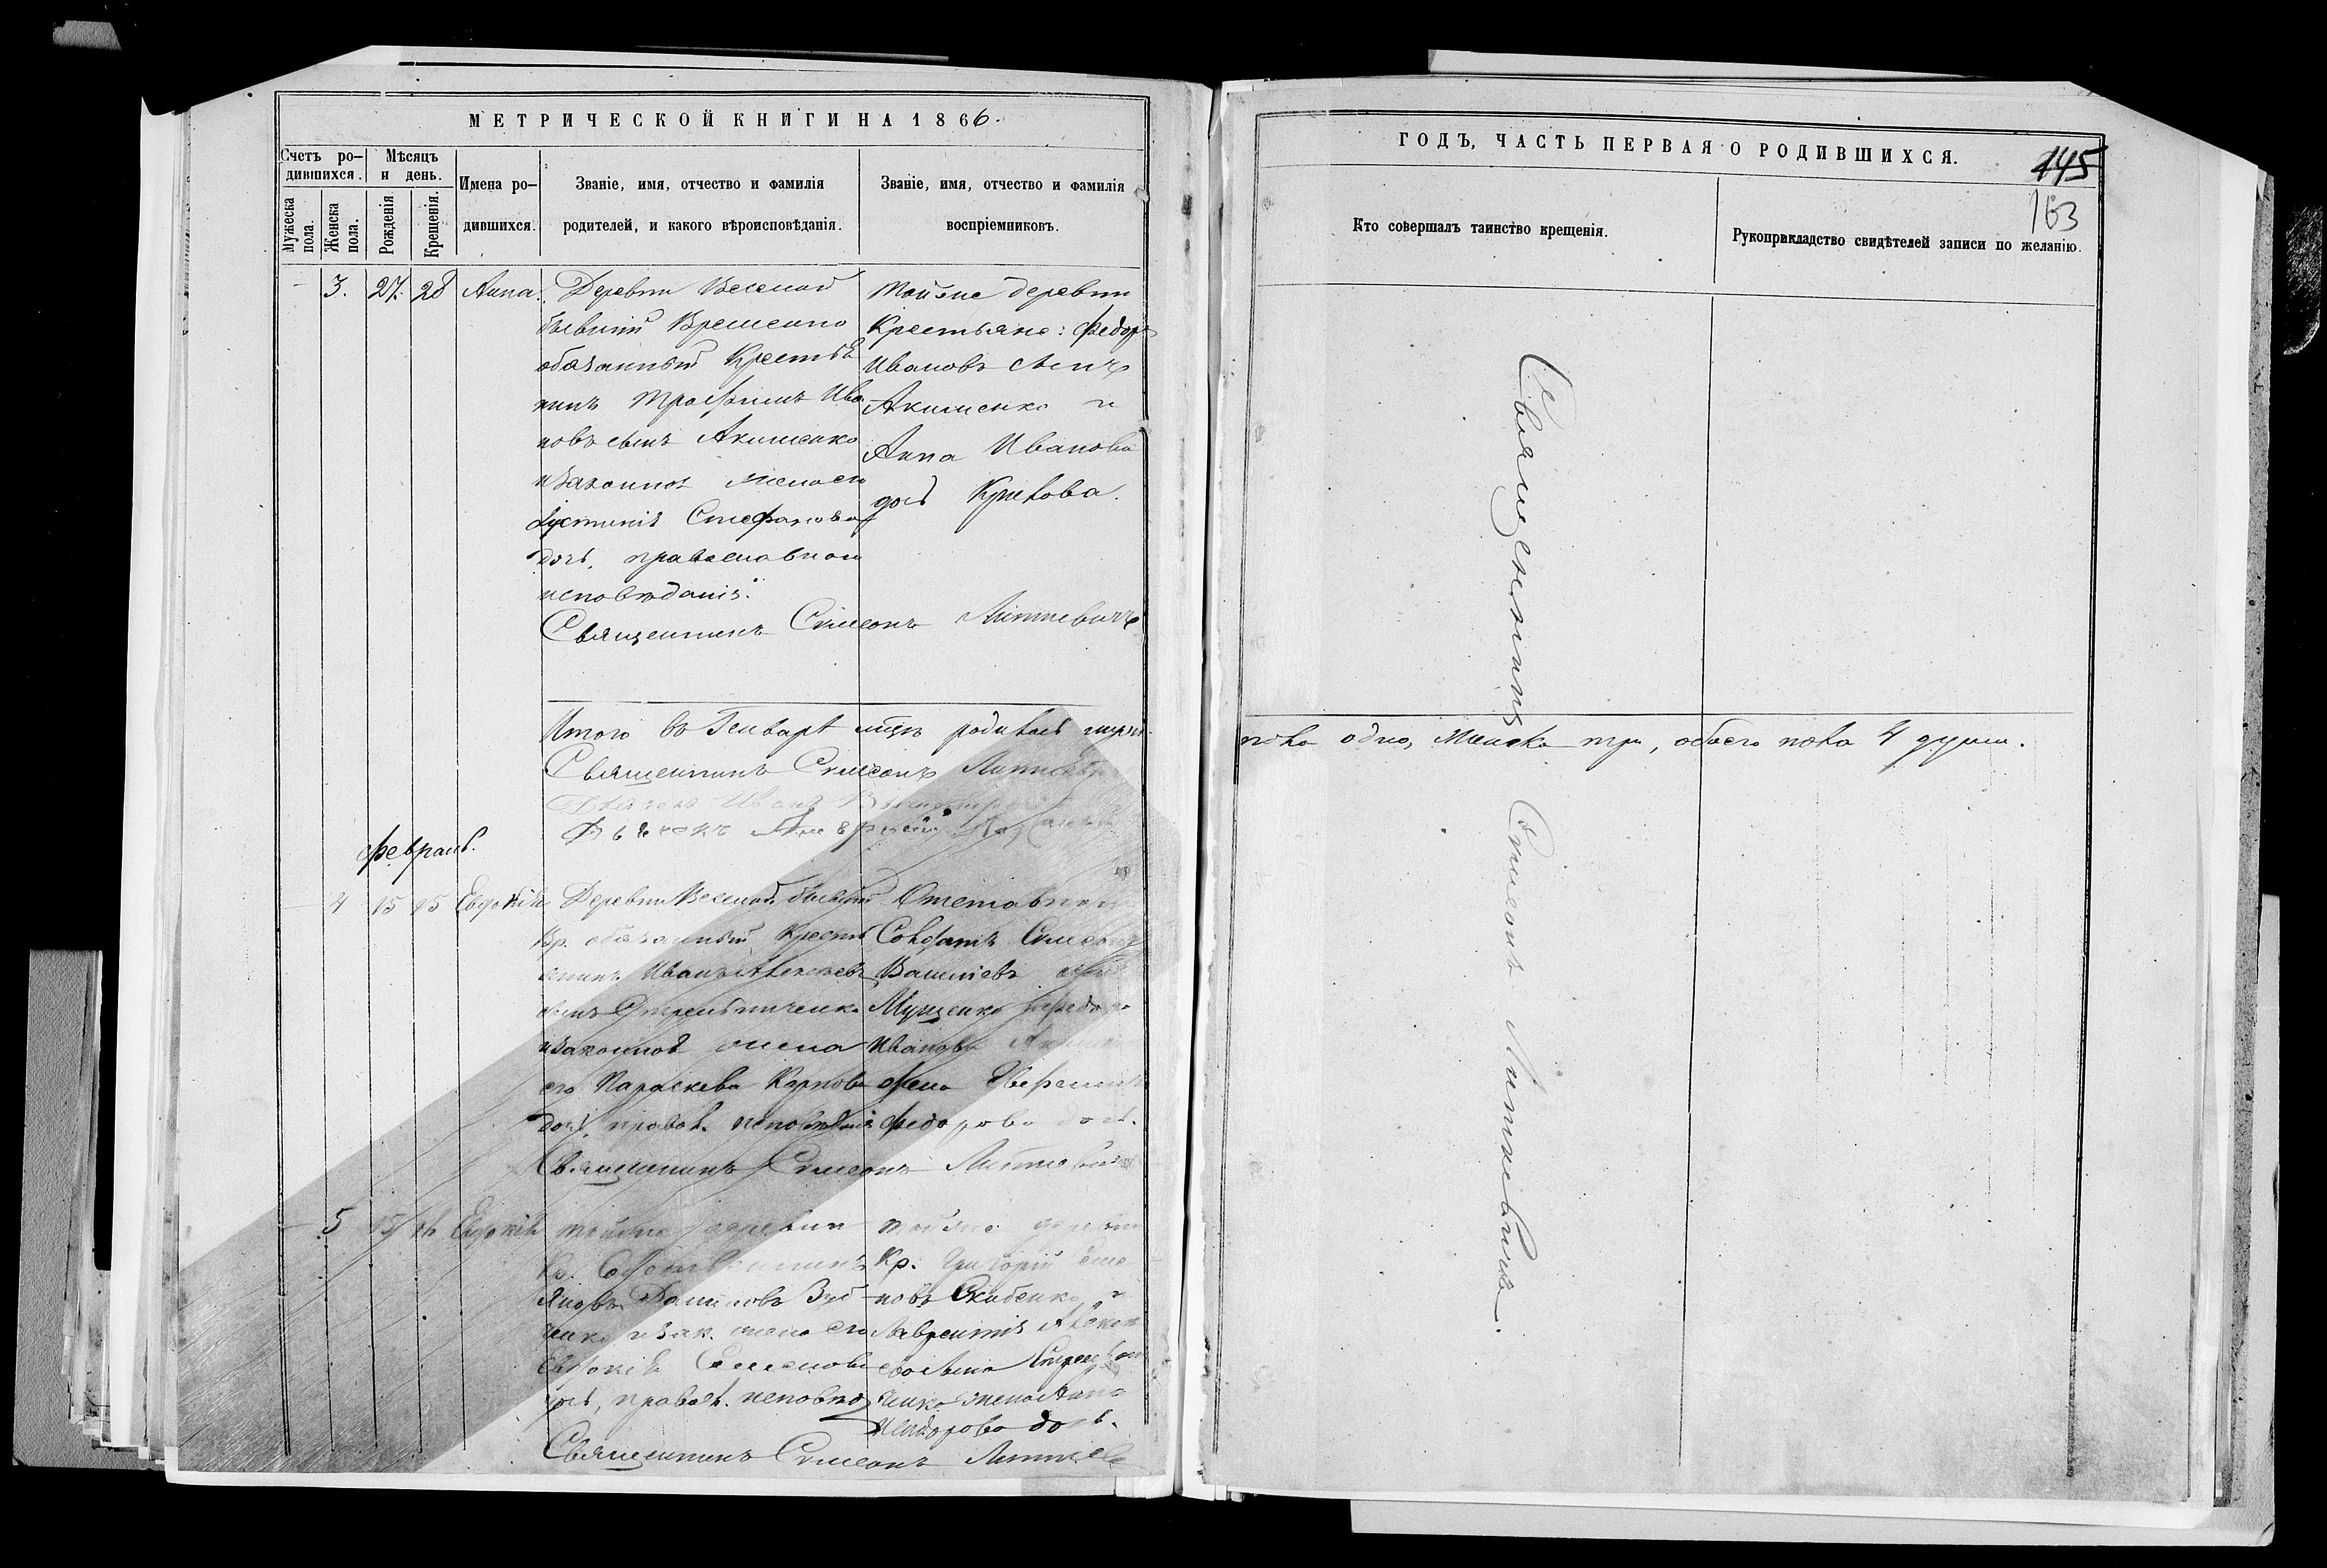 МЕТРИЧЕСКОЙ КНИГИ НА 1866.
Счетъ ро-
дившихся.
Мѣсяцъ
и день.
Мужеска
пола.
Женска
пола.
Рожденія
Крещенія.
Имена ро-
дившихся.
Званіе, имя, отчество и фамилія
родителей, и какого вѣроисповѣданія.
Званіе, имя, отчество и фамилія
воспріемниковъ.
3. 27. 28 Анна.
Деревни Веселой
бывшій Временно
обязанный Крестья
нинъ Трофимъ Ива
новъ сынъ Акименко
изаконноя жена его
Іустинія Стефанова
дочь, православнаго
исповѣданія.
Священникъ Симеонъ Литкевичъ
Тойже деревни
Крестьяне: Федоръ
Ивановъ сынъ
Акименко и
Анна Иванова
дочь
Итого въ Генварѣ мцѣ родилось мужск.
Священникъ Симеонъ
Иванъ
Февраль.
4 15 15 Евдокія
Деревни Веселой бывшій
Вр. обязанный Кресть
янинъ Иванъ Алексѣевъ
сынъ
изаконноя жена
его Параскева Карпова
дочь, правосл. исповѣданія
Священникъ Симеонъ Литкевичъ
Отставнаго
Ивановъ
жена
Федорова дочь.
5 15 16 Евдокія
Тойже деревни
Кр.
Яковъ Даниловъ
изак. жена его
Евдокія Семенова
дочь, правосл. исповѣд
Священникъ Симеонъ
Тойже деревни
Кр. Григорій
новъ Скибенко, и
Лаврентія
сына
ченко жена Анна
Исидорова дочь.
ГОДЪ, ЧАСТЬ ПЕРВАЯ О РОДИВШИХСЯ.
145
163
Кто совершалъ таинство крещенія.
Рукоприкладство свидѣтелей записи по желанію.
пола одно, Женска три, обоего пола 4 души.
Священникъ Симеонъ Литкевичъ.